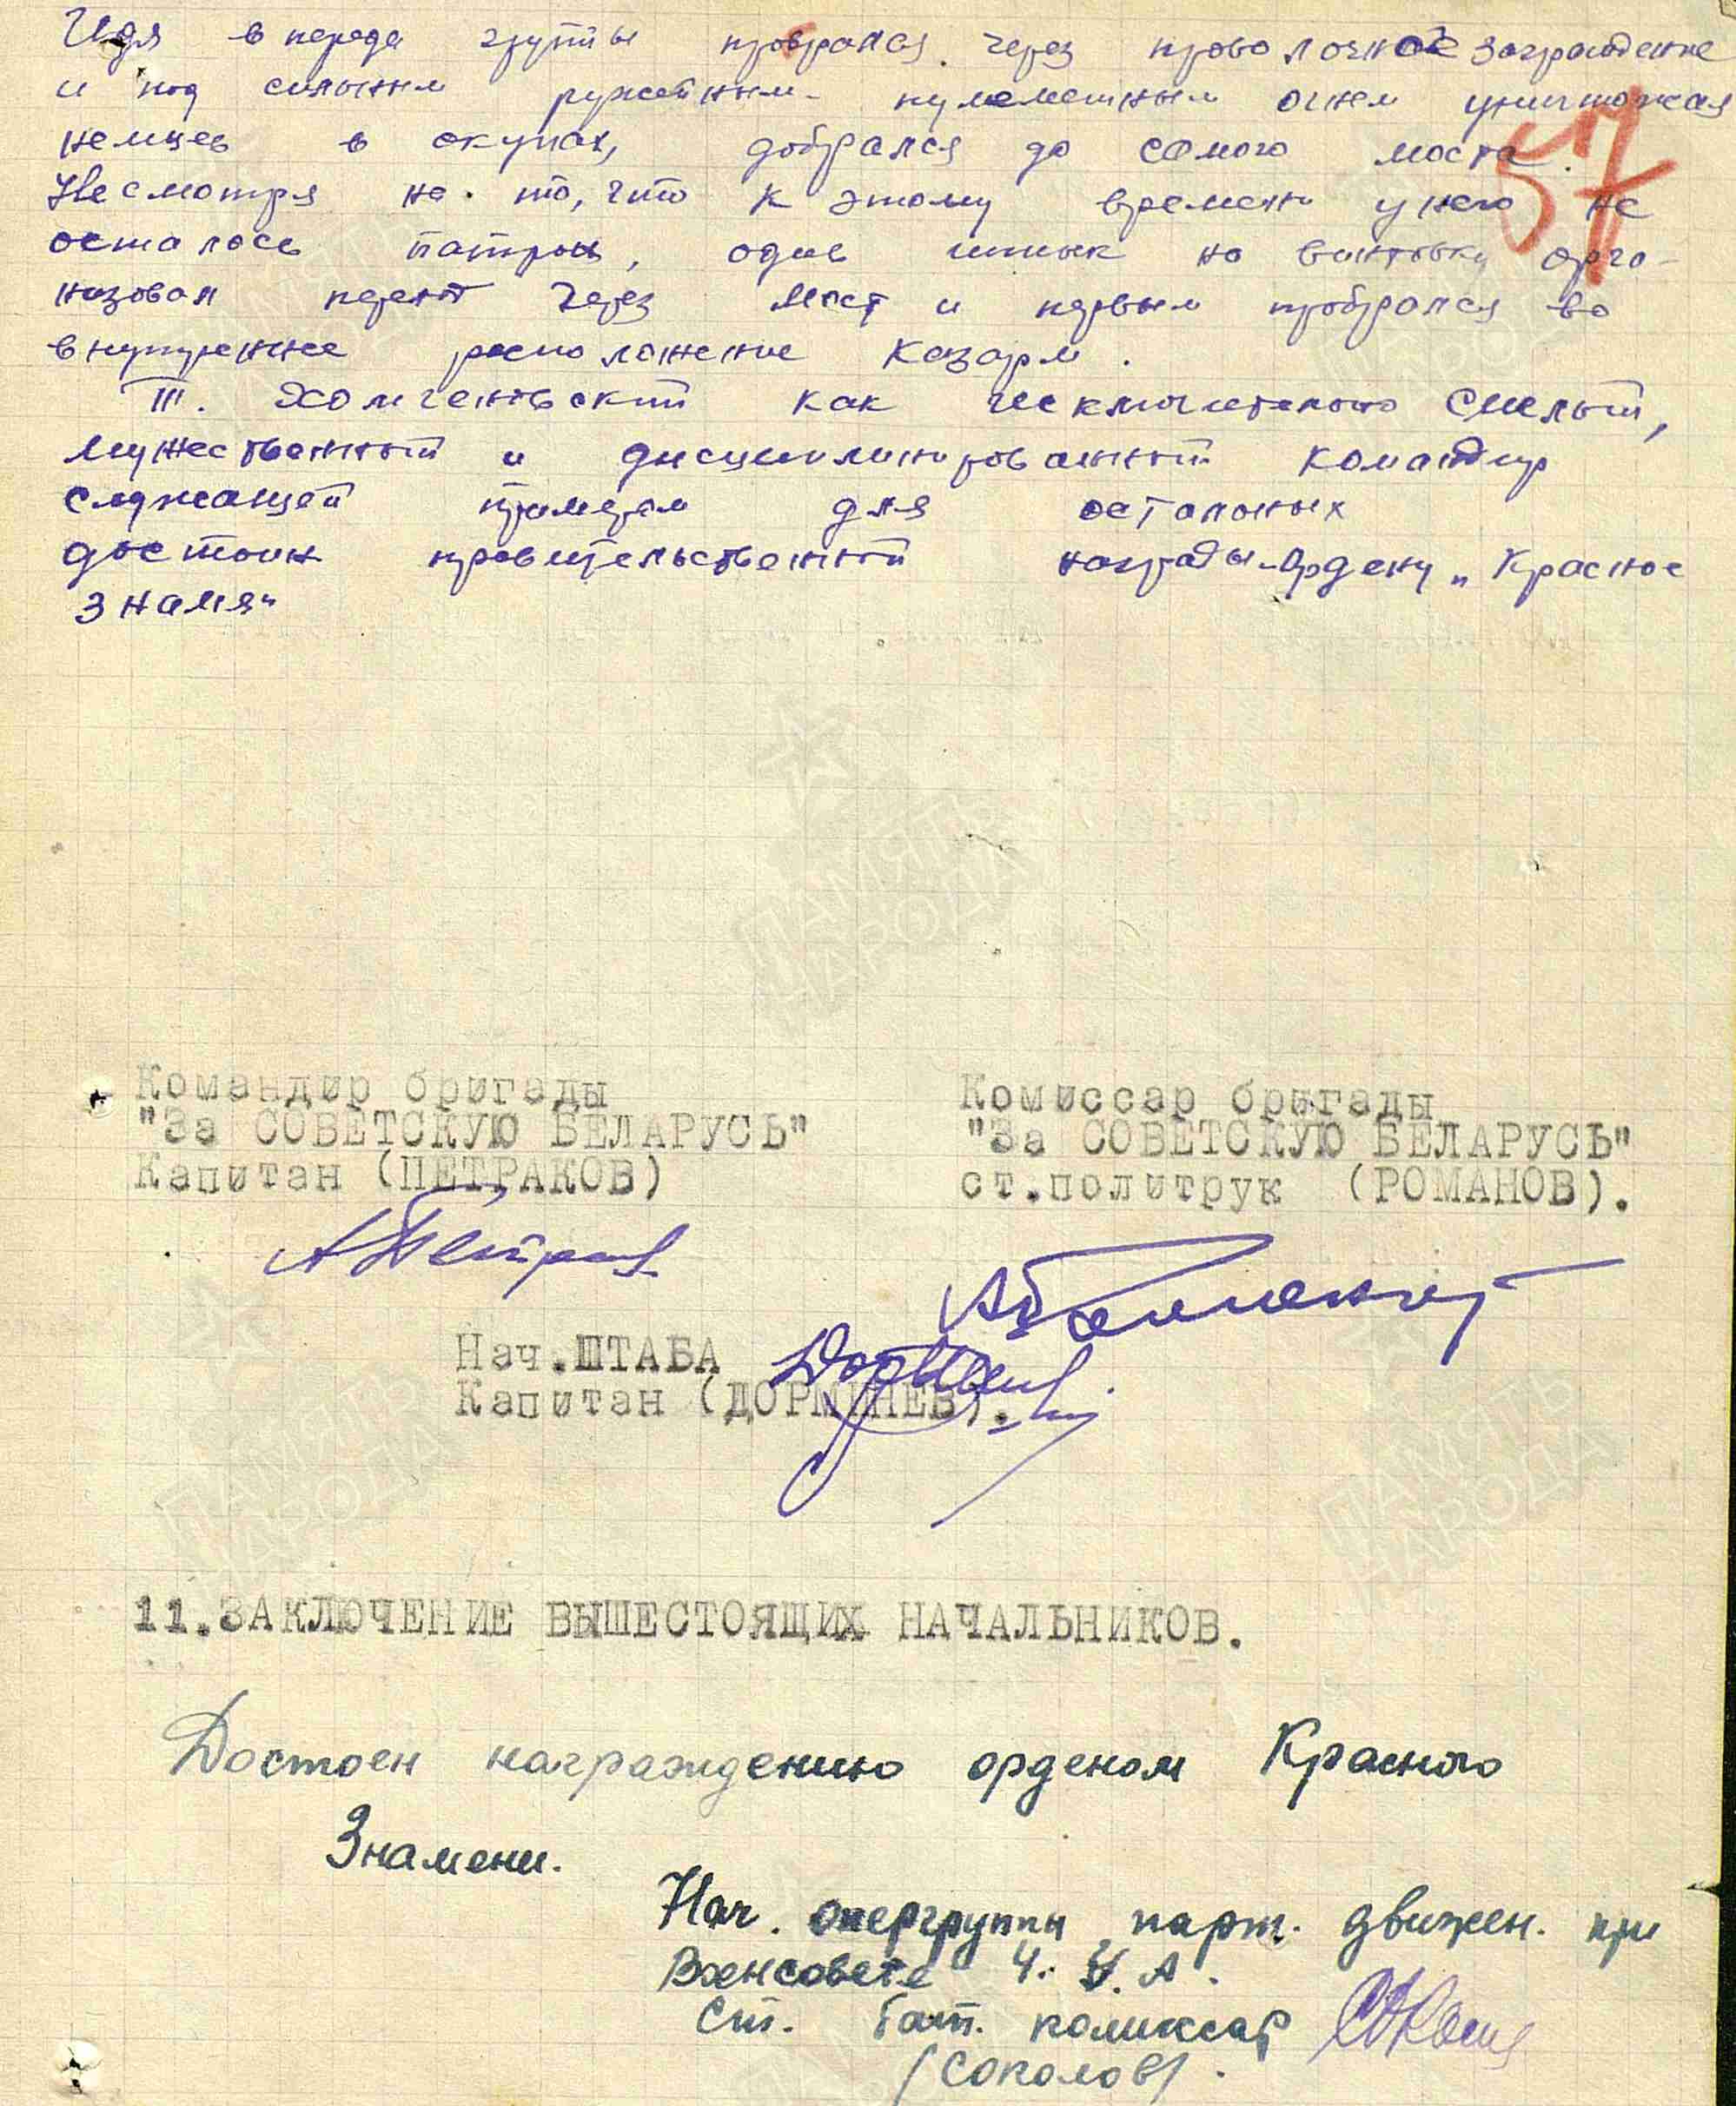 Идя в переде группы пробрался через проволочное заграждение
и под сильным ружейным- пулеметным огнем уничтожая
немцев в окупах, добрался до самого моста.
57
Несмотря на то, что к этому времени у него не
осталось патрон, одев штык на винтовку орга-
низовал через мост и первым пробрался во
внутреннее расположение казарм.
Т. как исключительно смелый,
мужественный и дисциплинированный командир
служащей примером для остальных
достоин правительственной награды-Ордену „Красное
знамя"
Командир бригады
"За СОВЕТСКУЮ БЕЛАРУСЬ"
Капитан (ПЕТРАКОВ)
Комиссар бригады
"За СОВЕТСКУЮ БЕЛАРУСЬ"
ст.политрук (РОМАНОВ).
Нач.ШТАБА
Капитан (ДОРМИНЕВ).
11.ЗАКЛЮЧЕНИЕ ВЫШЕСТОЯЩИХ НАЧАЛЬНИКОВ.
Достоен награждению орденом Красного
Знамени.
Нач. опергруппы парт. движен. при
Военсовете 4. У. А.
Ст. бат. комиссар
(Соколов).
ПАМЯТЬ
НАРОДА